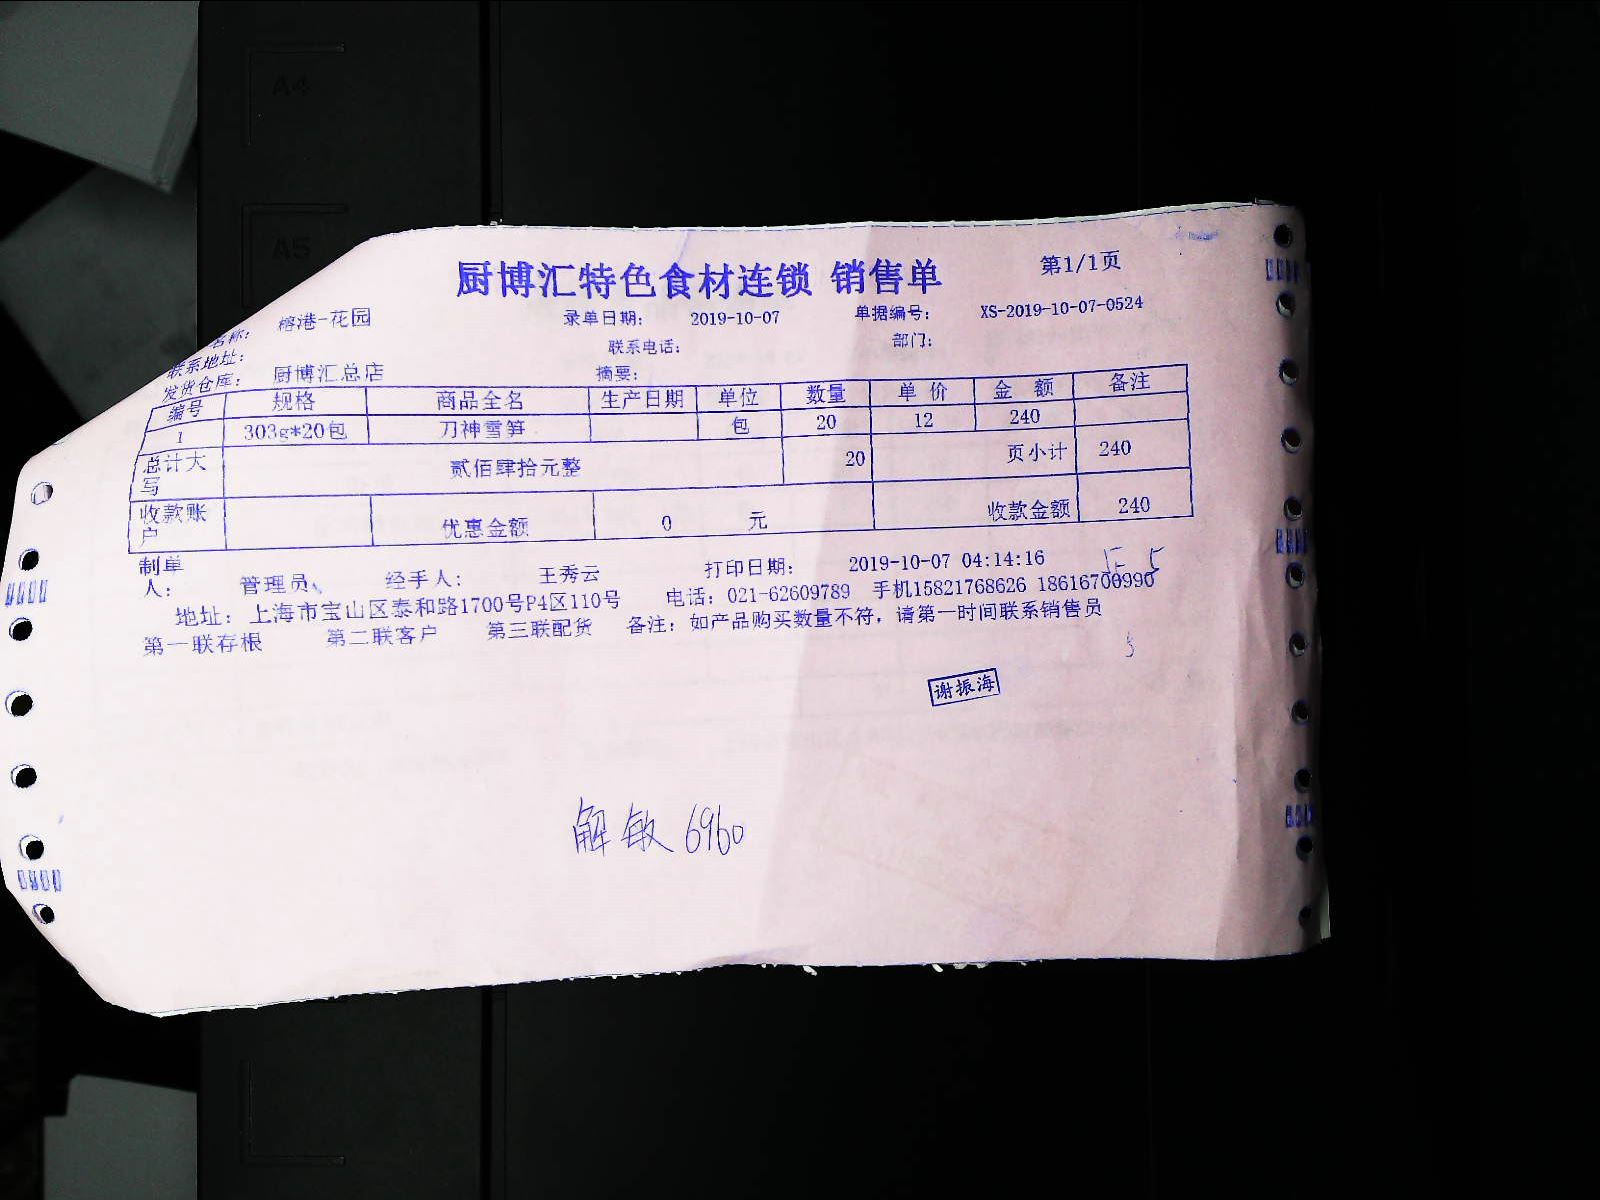 A4
A5
厨博汇特色食材连锁 销售单 第1/1页
名称: 榕港-花园 录单日期: 2019-10-07 单据编号: XS-2019-10-07-0524
联系地址: 联系电话: 部门:
发货仓库: 厨博汇总店 摘要:
编号 规格 商品全名 生产日期 单位 数量 单价 金额 备注
1 303g*20包 刀神雪笋 包 20 12 240
总计大写 贰佰肆拾元整 20 页小计 240
收款账户 优惠金额 0 元 收款金额 240
制单人: 管理员 经手人: 王秀云 打印日期: 2019-10-07 04:14:16
地址: 上海市宝山区泰和路1700号P4区110号 电话: 021-62609789 手机15821768626 18616700990
第一联存根 第二联客户 第三联配货 备注: 如产品购买数量不符, 请第一时间联系销售员
谢振海
解敏 6960